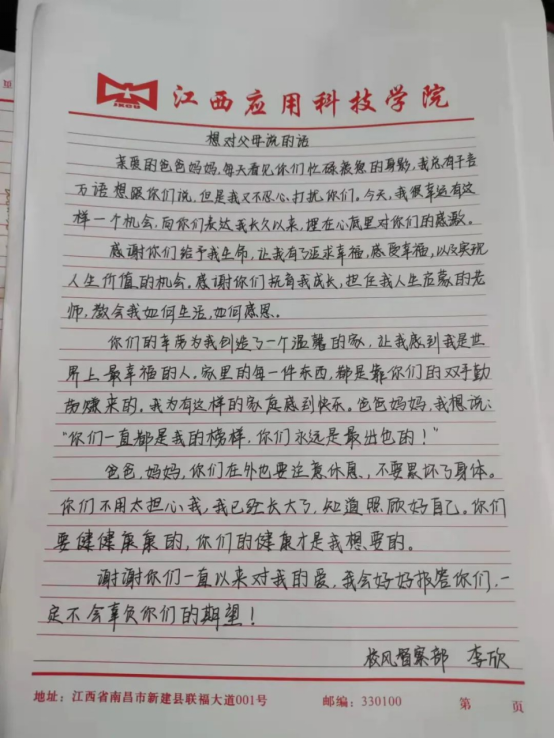 江西应用科技学院
想对父母说的话
亲爱的爸爸妈妈,每天看见你们忙碌疲惫的身影,我总有千言
万语想跟你们说,但是我又不忍心打扰你们。今天,我很幸运有这
样一个机会,向你们表达我长久以来,埋在心底里对你们的感激。
感谢你们给予我生命,让我有了追求幸福,感受幸福,以及实现
人生价值的机会。感谢你们抚育我成长,担任我人生启蒙的老
师,教会我如何生活,如何感恩。
你们的辛劳为我创造了一个温馨的家,让我感到我是世
界上最幸福的人。家里的每一件东西,都是靠你们的双手勤
劳赚来的。我为有这样的家庭感到快乐。爸爸妈妈,我想说:
“你们一直都是我的榜样,你们永远是最出色的!”
爸爸,妈妈,你们在外也要注意休息,不要累坏了身体。
你们不用太担心我,我已经长大了,知道照顾好自己。你们
要健健康康的,你们的健康才是我想要的。
谢谢你们一直以来对我的爱,我会好好报答你们,一
定不会辜负你们的期望!
校风督察部 李欣
地址:江西省南昌市新建县联福大道001号 邮编:330100 第 页